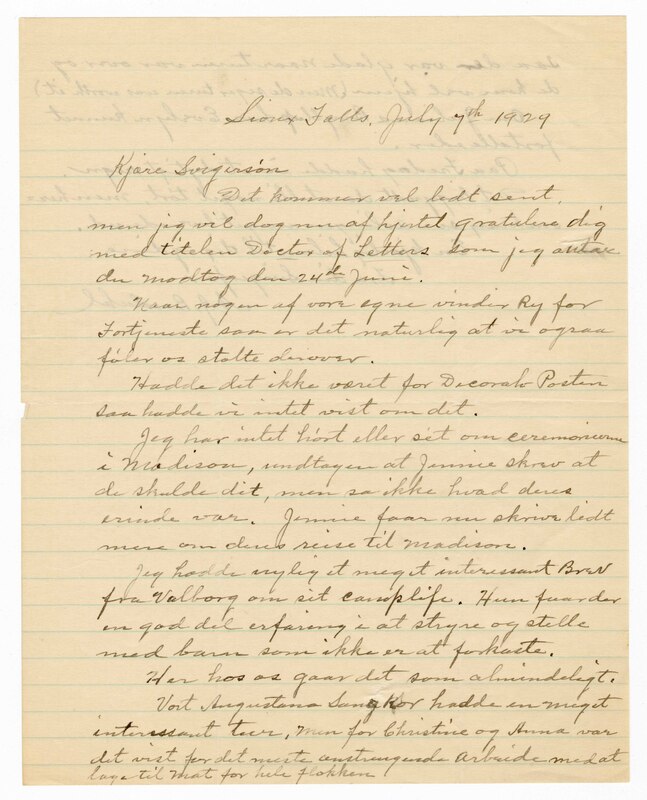 Sioux Falls, July 7th 1929
Kjære Svigersøn
Det kommer vel lidt sent,
men jeg vil dog nu af hjertet gratulere dig
med titelen Doctor of Letters som jeg antar
du modtog den 24de Juni.
Naar nogen af vore egne vinder Ry for
Fortjeneste saa er det naturlig at vi ogsaa
føler os stolte derover.
Hadde det ikke været for Decorah Posten
saa hadde vi intet vist om det.
Jeg har intet hört eller set om ceremonierne
i Madison, undtagen at Jennie skrev at
de skulde dit, men sa ikke hvad deres
erinde var. Jennie faar nu skrive lidt
mere om deres reise til Madison.
Jeg hadde nylig et meget interessant Brev
fra Valborg om sit camplife. Hun faar der
en god del erfaring i at styre og stelle
med barn som ikke er at forkaste.
Her hos os gaar det som almindeligt.
Vort Augustana Sang Kor hadde en meget
interessant tur, men for Christine og Anna var
det vist for det meste anstrengende Arbeide med at
lage til Mat for hele flokken